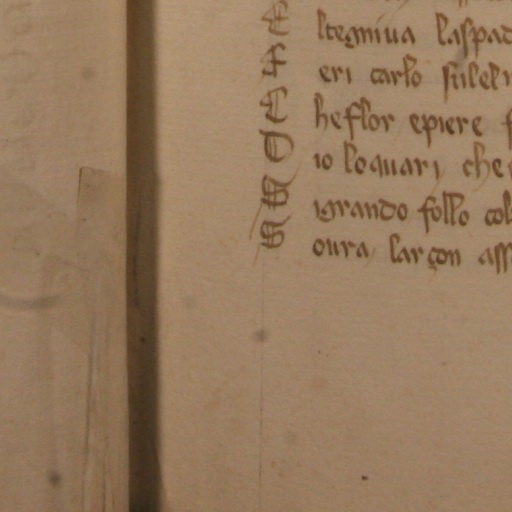 E ltegniua laspad
F eri carlo sulel
C he flor epiere f
D io loquari che
S igrando follo col
S oura larçon ass